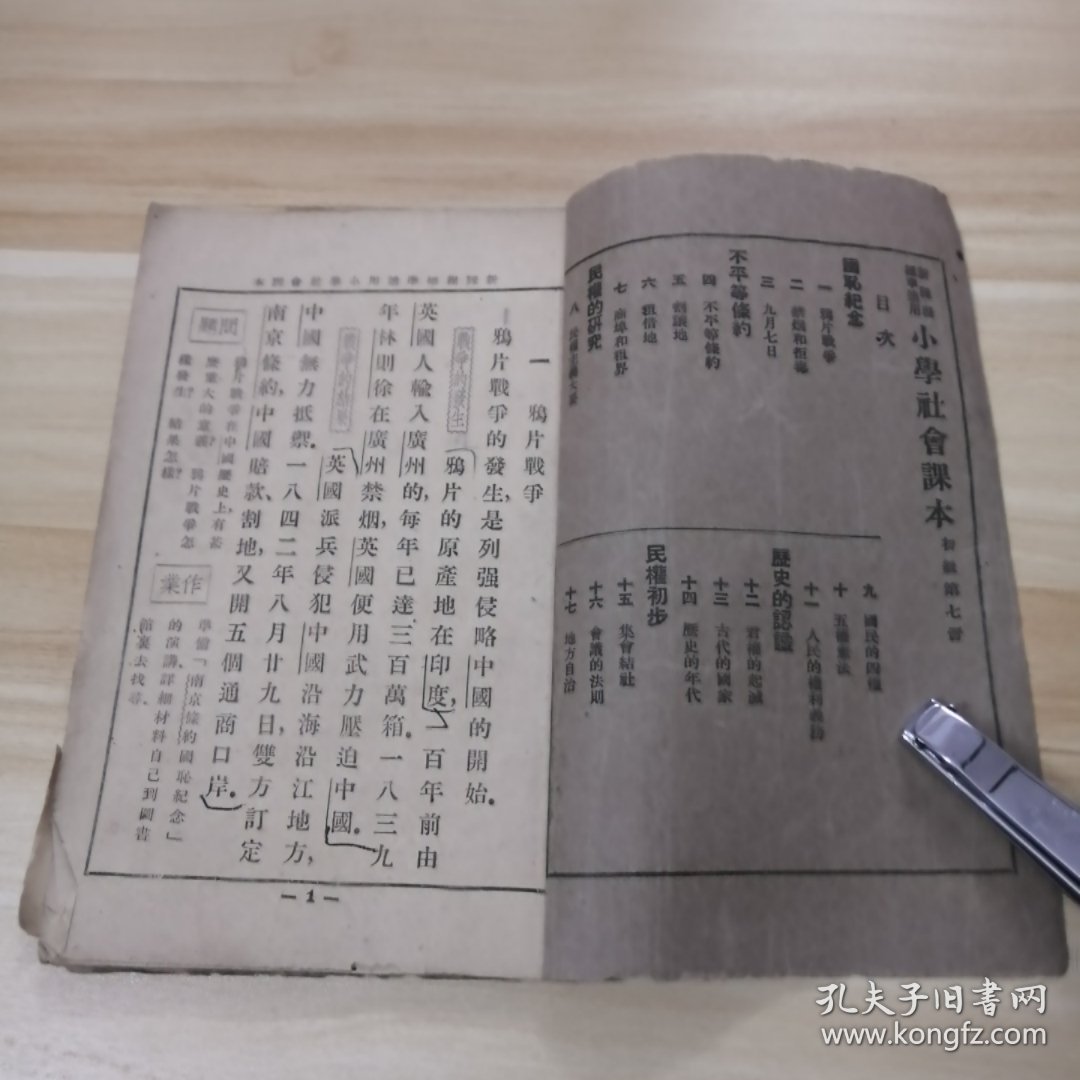 小學社會課本 初級第七冊
目次
國恥紀念
一 鴉片戰爭
二 禁烟和拒毒
三 九月七日
不平等條約
四 不平等條約
五 割讓地
六 租借地
七 商埠和租界
民權的研究
八
九 國民的四權
十 五權憲法
十一 人民的權利義務
歷史的認識
十二 君權的起滅
十三 古代的國家
十四 歷史的年代
民權初步
十五 集會結社
十六 會議的法則
十七 地方自治
一 鴉片戰爭
鴉片戰爭的發生，是列强侵略中國的開始。
戰爭的發生 鴉片的原產地在印度，一百年前由
英國人輸入廣州的，每年已達三百萬箱。一八三九
年林則徐在廣州禁烟，英國便用武力壓迫中國。
戰爭的結果 英國派兵侵犯中國沿海沿江地方，
中國無力抵禦。一八四二年八月廿九日，雙方訂定
南京條約，中國賠款、割地，又開五個通商口岸。
問題
鴉片戰爭在中國歷史上，有甚
麼重大的意義？ 鴉片戰爭怎
樣發生？ 結果怎樣？
作業
準備「南京條約國恥紀念」
的演講，詳細材料自己到圖書
館裏去找尋。
— 1 —
孔夫子旧书网
www.kongfz.com